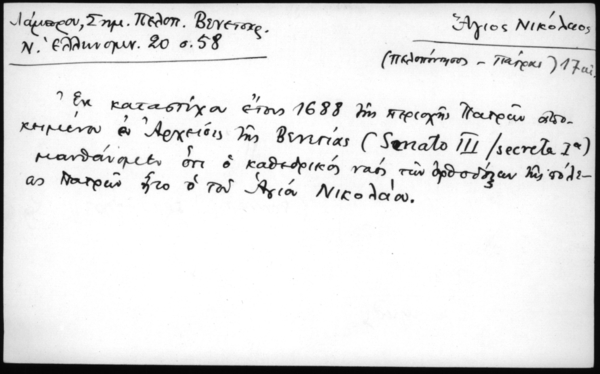 Λάμπρου, Σημ. Πελοπ. Βενετοκρ.
Ν. Ἑλληνομν. 20 σ. 58
Ἅγιος Νικόλαος
(Πελοπόννησος - Πάτραι) 17 αἰ.
Ἐκ καταστίχου ἔτους 1688 τῆς περιοχῆς Πατρῶν ἀπο-
κειμένου ἐν Ἀρχείοις τῆς Βενετίας (Senato III / secreta 1α)
μανθάνομεν ὅτι ὁ καθεδρικός ναός τῶν ὀρθοδόξων τῆς πόλε-
ως Πατρῶν ἦτο ὁ τοῦ Ἁγίου Νικολάου.